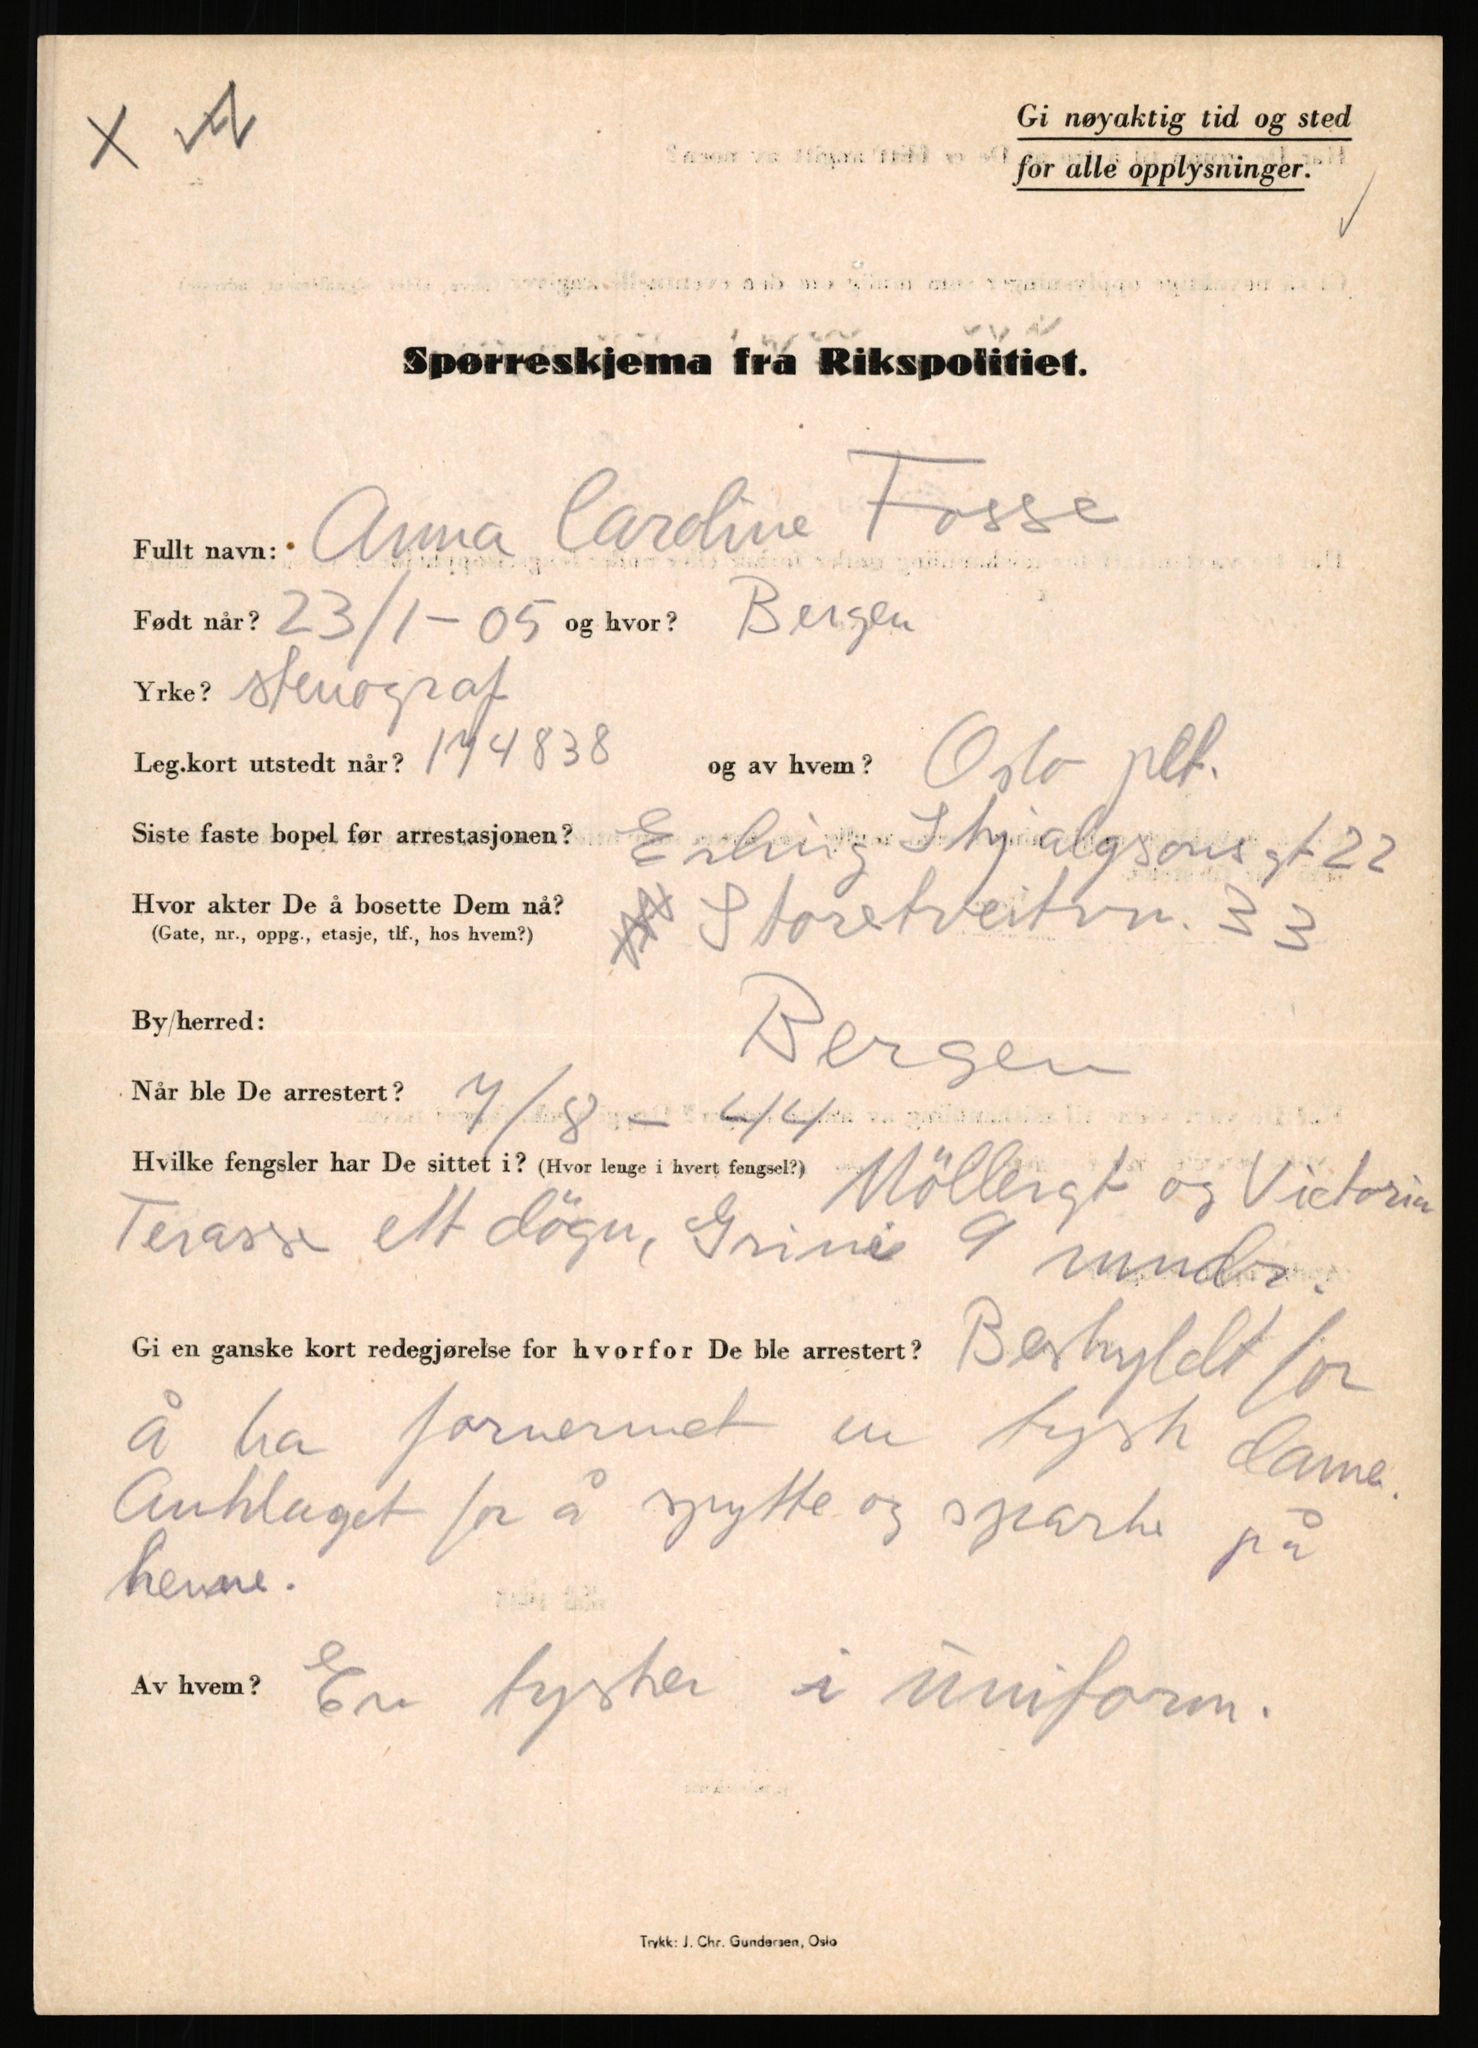 X A
Gi nøyaktig tid og sted
for alle opplysninger.
Spørreskjema fra Rikspolitiet.
Fullt navn: Anna Caroline Fosse
Født når? 23/1 - 05 og hvor? Bergen
Yrke? stenograf
Leg.kort utstedt når? 174838 og av hvem? Oslo plt.
Siste faste bopel før arrestasjonen? Erling Skjalgsons gt 22
Hvor akter De å bosette Dem nå? Storetveitvn. 33
(Gate, nr., oppg., etasje, tlf., hos hvem?)
By/herred: Bergen
Når ble De arrestert? 7/8 - 44
Hvilke fengsler har De sittet i? (Hvor lenge i hvert fengsel?) Möllergt og Victoria
Terasse ett dögn, Grini 9 mndr.
Gi en ganske kort redegjørelse for hvorfor De ble arrestert? Beskyldt for
å ha fornermet en tysk dame.
Anklaget for å spytte og sparke på
henne.
Av hvem? En tysker i uniform.
Trykk: J. Chr. Gundersen, Oslo